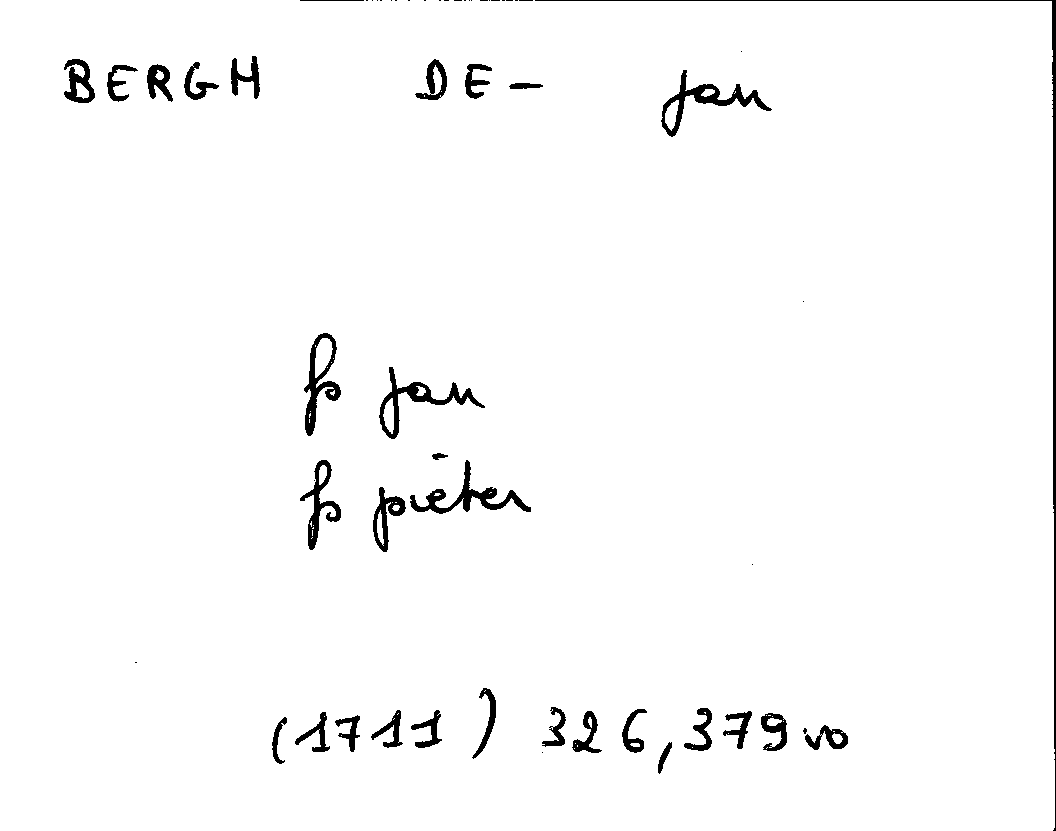 BERGH DE- Jan
fs Jan
fs pieter
(1711) 326, 379 vo